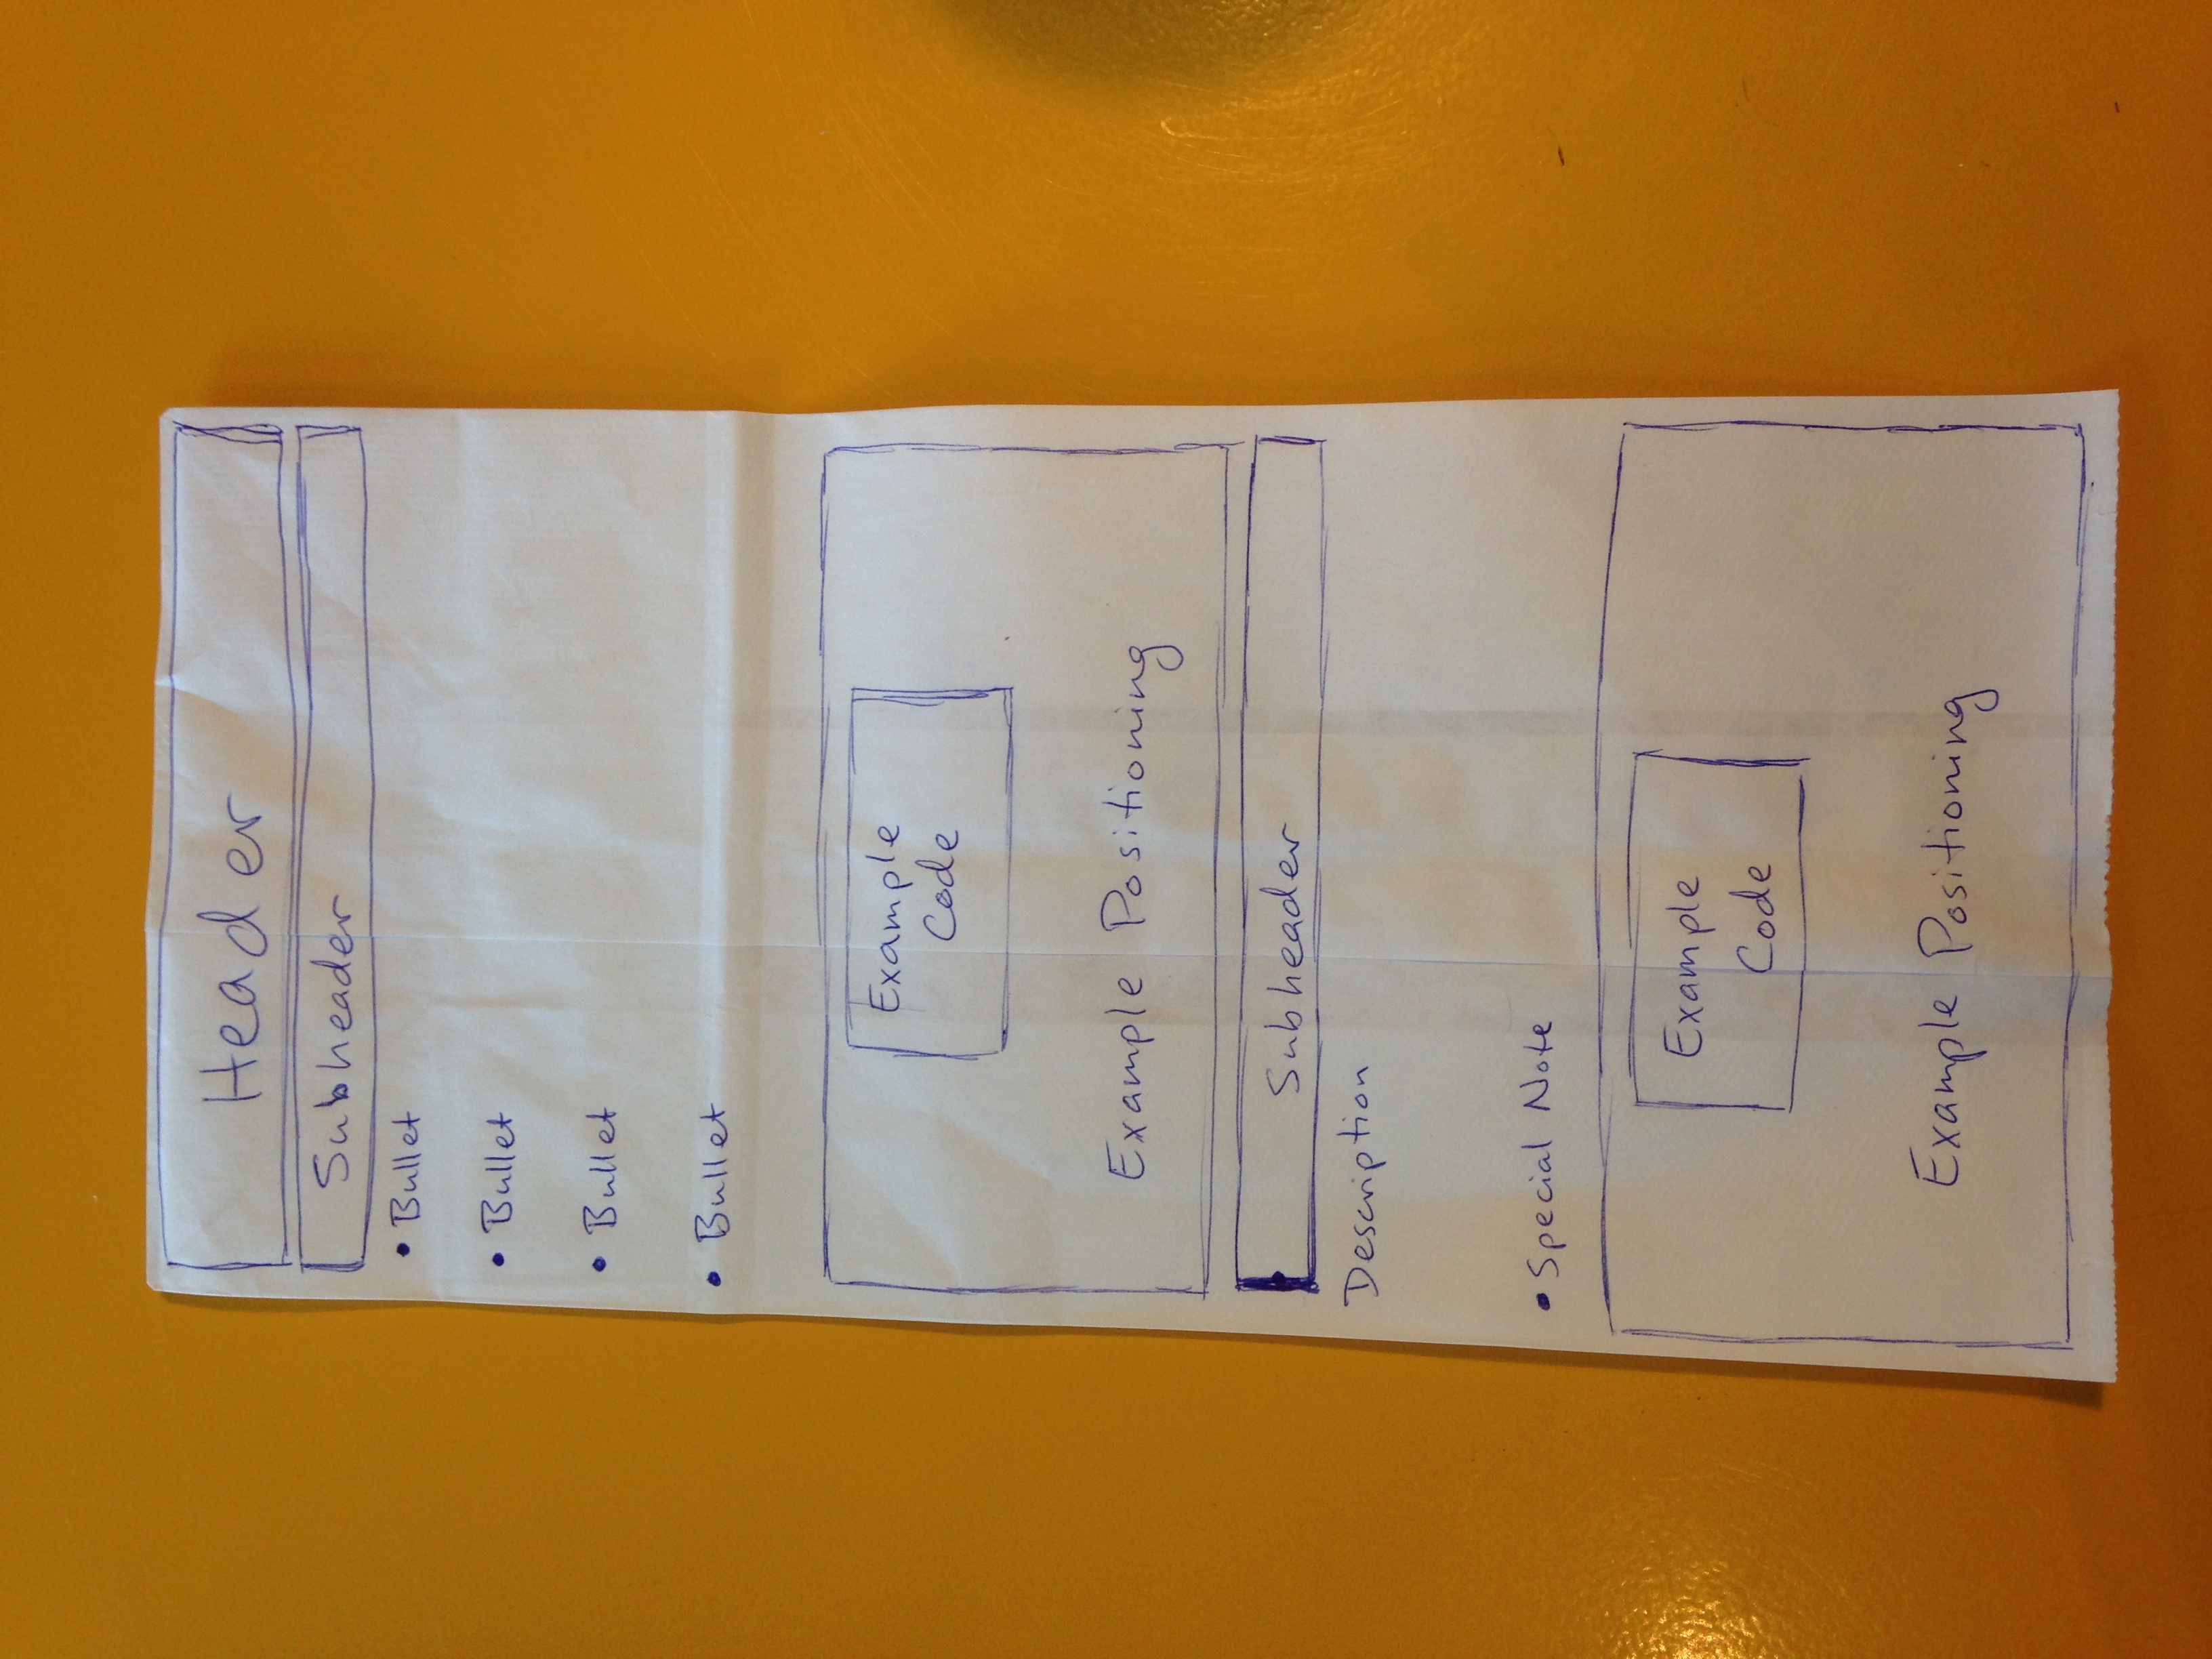 Header
Subheader
• Bullet
• Bullet
• Bullet
• Bullet
Example
Code
Example Positioning
Subheader
Description
• Special Note
Example
Code
Example Positioning